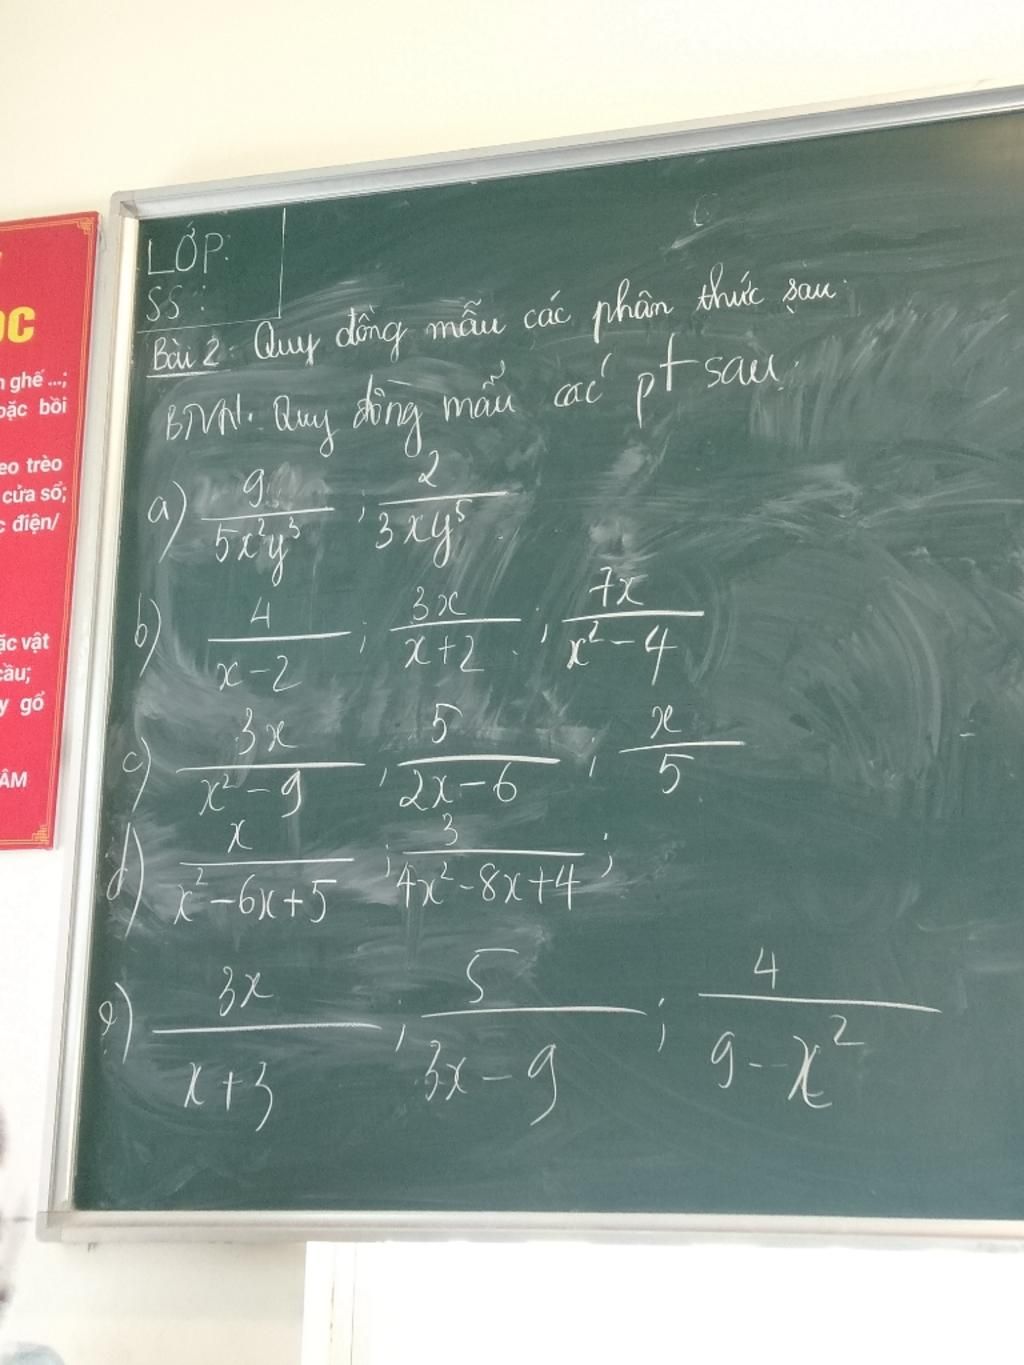 ỌC
n ghế ...;
oặc bồi
eo trèo
cửa sổ;
c điện/
ặc vật
cầu;
y gổ
ÂM
LỚP:
SS:
Bài 2: Quy đồng mẫu các phân thức sau:
BTVN: Quy đồng mẫu các pt sau:
a) 9/5x²y³ ; 2/3xy⁵
b) 4/x-2 ; 3x/x+2 ; 7x/x²-4
c) 3x/x²-9 ; 5/2x-6 ; x/5
d) x/x²-6x+5 ; 3/4x²-8x+4 ;
e) 3x/x+3 ; 5/3x-9 ; 4/9-x²